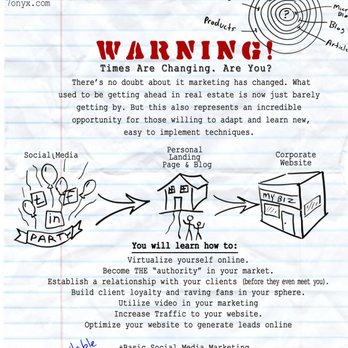 7onyx.com
Products
?
Blog
Article
WARNING!
Times Are Changing. Are You?
There's no doubt about it marketing has changed. What
used to be getting ahead in real estate is now just barely
getting by. But this also represents an incredible
opportunity for those willing to adapt and learn new,
easy to implement techniques.
Social Media
Personal
Landing
Page & Blog
Corporate
Website
t
in
PARTY
MY BIZ
You will learn how to:
Virtualize yourself online.
Become THE "authority" in your market.
Establish a relationship with your clients (before they even meet you).
Build client loyalty and raving fans in your sphere.
Utilize video in your marketing
Increase Traffic to your website.
Optimize your website to generate leads online
+Basic Social Media Marketing